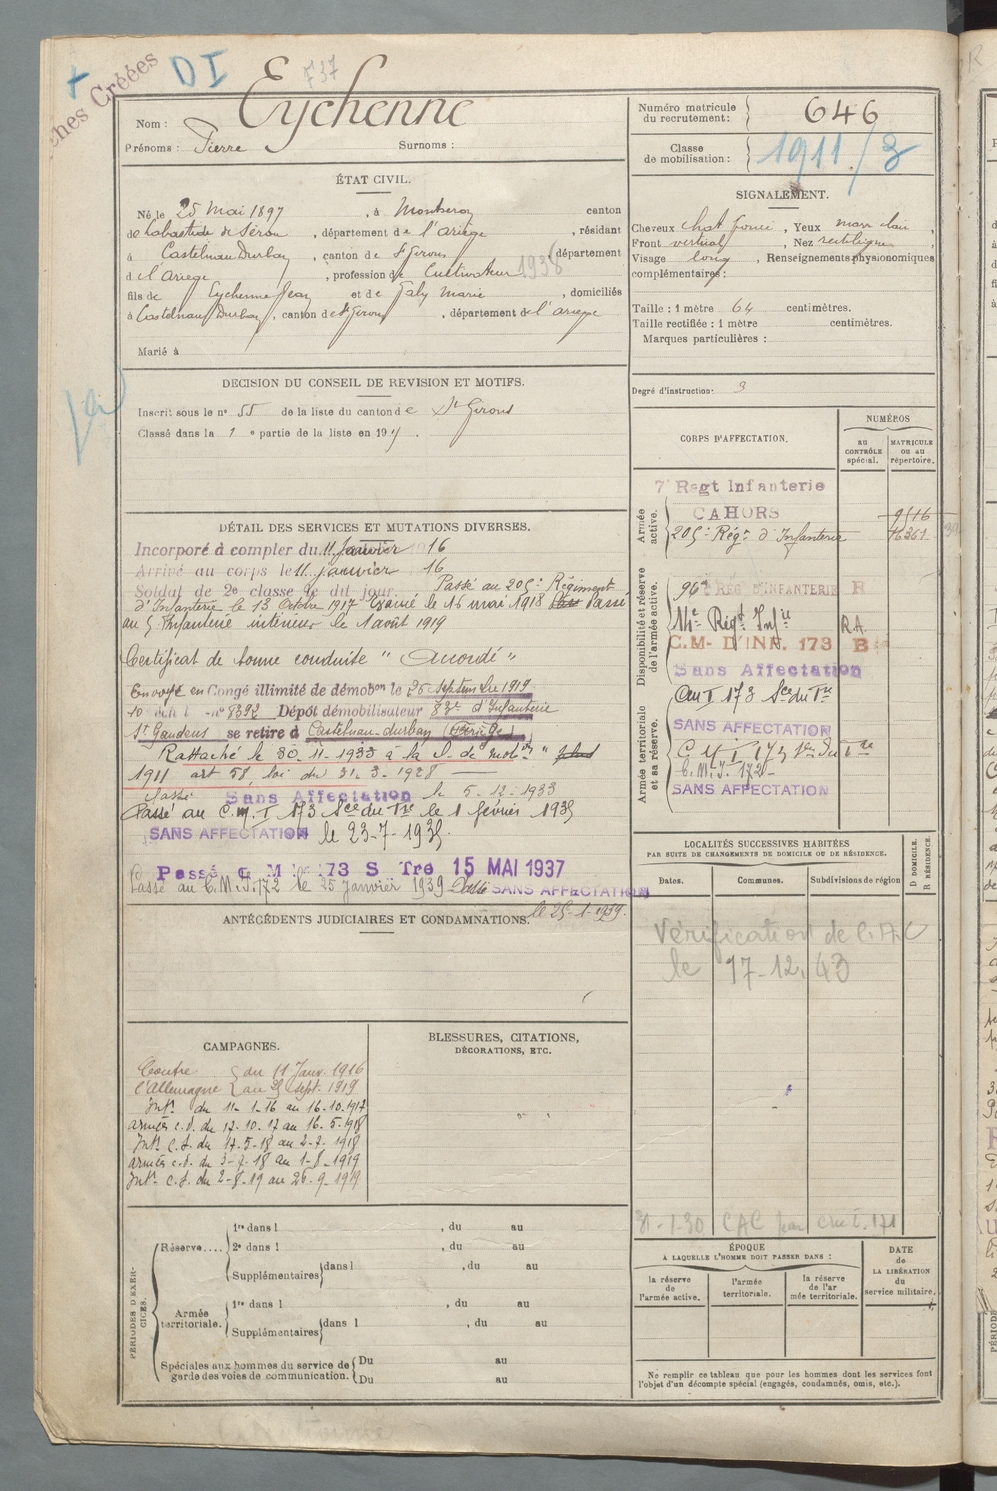 Fiches Créées
+ DI
737
Nom : Eychenne
Prénoms : Pierre Surnoms :
ÉTAT CIVIL.
Né le 25 mai 1897, à Montseron canton
de Labastide de Sérou, département de l'Ariège, résidant
à Castelnau Durban, canton de St Girons département
de l'Ariège, profession de Cultivateur 1938
fils de Eychenne Jean et de Galy Marie, domiciliés
à Castelnau Durban, canton de St Girons, département de l'ariège
Marié à
DECISION DU CONSEIL DE REVISION ET MOTIFS.
Inscrit sous le n° 55 de la liste du canton de St Girons
Classé dans la 1 e partie de la liste en 19
DÉTAIL DES SERVICES ET MUTATIONS DIVERSES.
Incorporé à compter du 11 janvier 1916
Arrivé au corps le 11 janvier 16
Soldat de 2e classe le dit jour. Passé au 205e Régiment
d'Infanterie le 13 Octobre 1917 Evacué le 16 mai 1918 Passé
au Infanterie intérieur le 1 août 1919
Certificat de bonne conduite "Accordé"
Envoyé en Congé illimité de démobon le 26 septembre 1919
10 éch l n° 8392 Dépôt démobilisateur d'Infanterie
St Gaudens se retire à Castelnau-durban (Ariège)
Rattaché le 30-11-1933 à la Cl. de mobon
1911 art 58, loi du 31-3-1928
Classé Sans Affectation le 5-12-1933
Passé au C.M.I 173 Sce du Tre le 1 février 1935
SANS AFFECTATION le 23-7-1935.
Passé C M 173 S Tre 15 MAI 1937
Passé au C.M.I. 172 le 25 janvier 1939 Classé SANS AFFECTATION
le 25-1-1939.
ANTÉCÉDENTS JUDICIAIRES ET CONDAMNATIONS.
CAMPAGNES.
Contre { du 11 Janv. 1916
l'Allemagne { au 25 sept. 1919
Intr. du 11-1-16 au 16-10-1917
armées c.d. du 17-10-17 au 16-5-1918
Intr. C.S. du 17-5-18 au 2-7-1918
armées c.d. du 3-7-18 au 1-8-1919
Intr. C.S. du 2-8-19 au 26-9-1919
BLESSURES, CITATIONS,
DÉCORATIONS, ETC.
PÉRIODES D'EXERCICES.
Réserve....
1re dans l , du au
2e dans l , du au
Supplémentaires dans l , du au
Armée territoriale.
1re dans l , du au
Supplémentaires dans l , du au
Spéciales aux hommes du service de
garde des voies de communication.
Du au
Du au
Numéro matricule
du recrutement : 646
Classe
de mobilisation : 1911/3
SIGNALEMENT.
Cheveux chat foncé, Yeux marr clair,
Front vertical, Nez rectiligne,
Visage long, Renseignements physionomiques
complémentaires :
Taille : 1 mètre 64 centimètres.
Taille rectifiée : 1 mètre centimètres.
Marques particulières :
Degré d'instruction: 3
CORPS D'AFFECTATION.
NUMÉROS
au
CONTRÔLE
spécial.
MATRICULE
ou au
répertoire.
Armée
active.
7e Regt Infanterie
CAHORS 9516
205e Régt d'Infanterie 16261
Disponibilité et réserve
de l'armée active.
96e REG D'INFANTERIE R
14e Régt Infie R.A.
C.M- D'INF. 173 B
Sans Affectation
Armée territoriale
et sa réserve.
C.M I 173 Sce du Tre
SANS AFFECTATION
C M I 173 Sce du Tre
C.M.I. 172
SANS AFFECTATION
LOCALITÉS SUCCESSIVES HABITÉES
PAR SUITE DE CHANGEMENTS DE DOMICILE OU DE RÉSIDENCE.
Dates. Communes. Subdivisions de région
D DOMICILE.
R RÉSIDENCE.
Vérification de CAC
le 17-12-43
31-1-30 CAC par
ÉPOQUE
A LAQUELLE L'HOMME DOIT PASSER DANS :
la réserve
de
l'armée active.
l'armée
territoriale.
la réserve
de l'ar
mée territoriale.
DATE
de
LA LIBÉRATION
du
service militaire.
Ne remplir ce tableau que pour les hommes dont les services font
l'objet d'un décompte spécial (engagés, condamnés, omis, etc.).